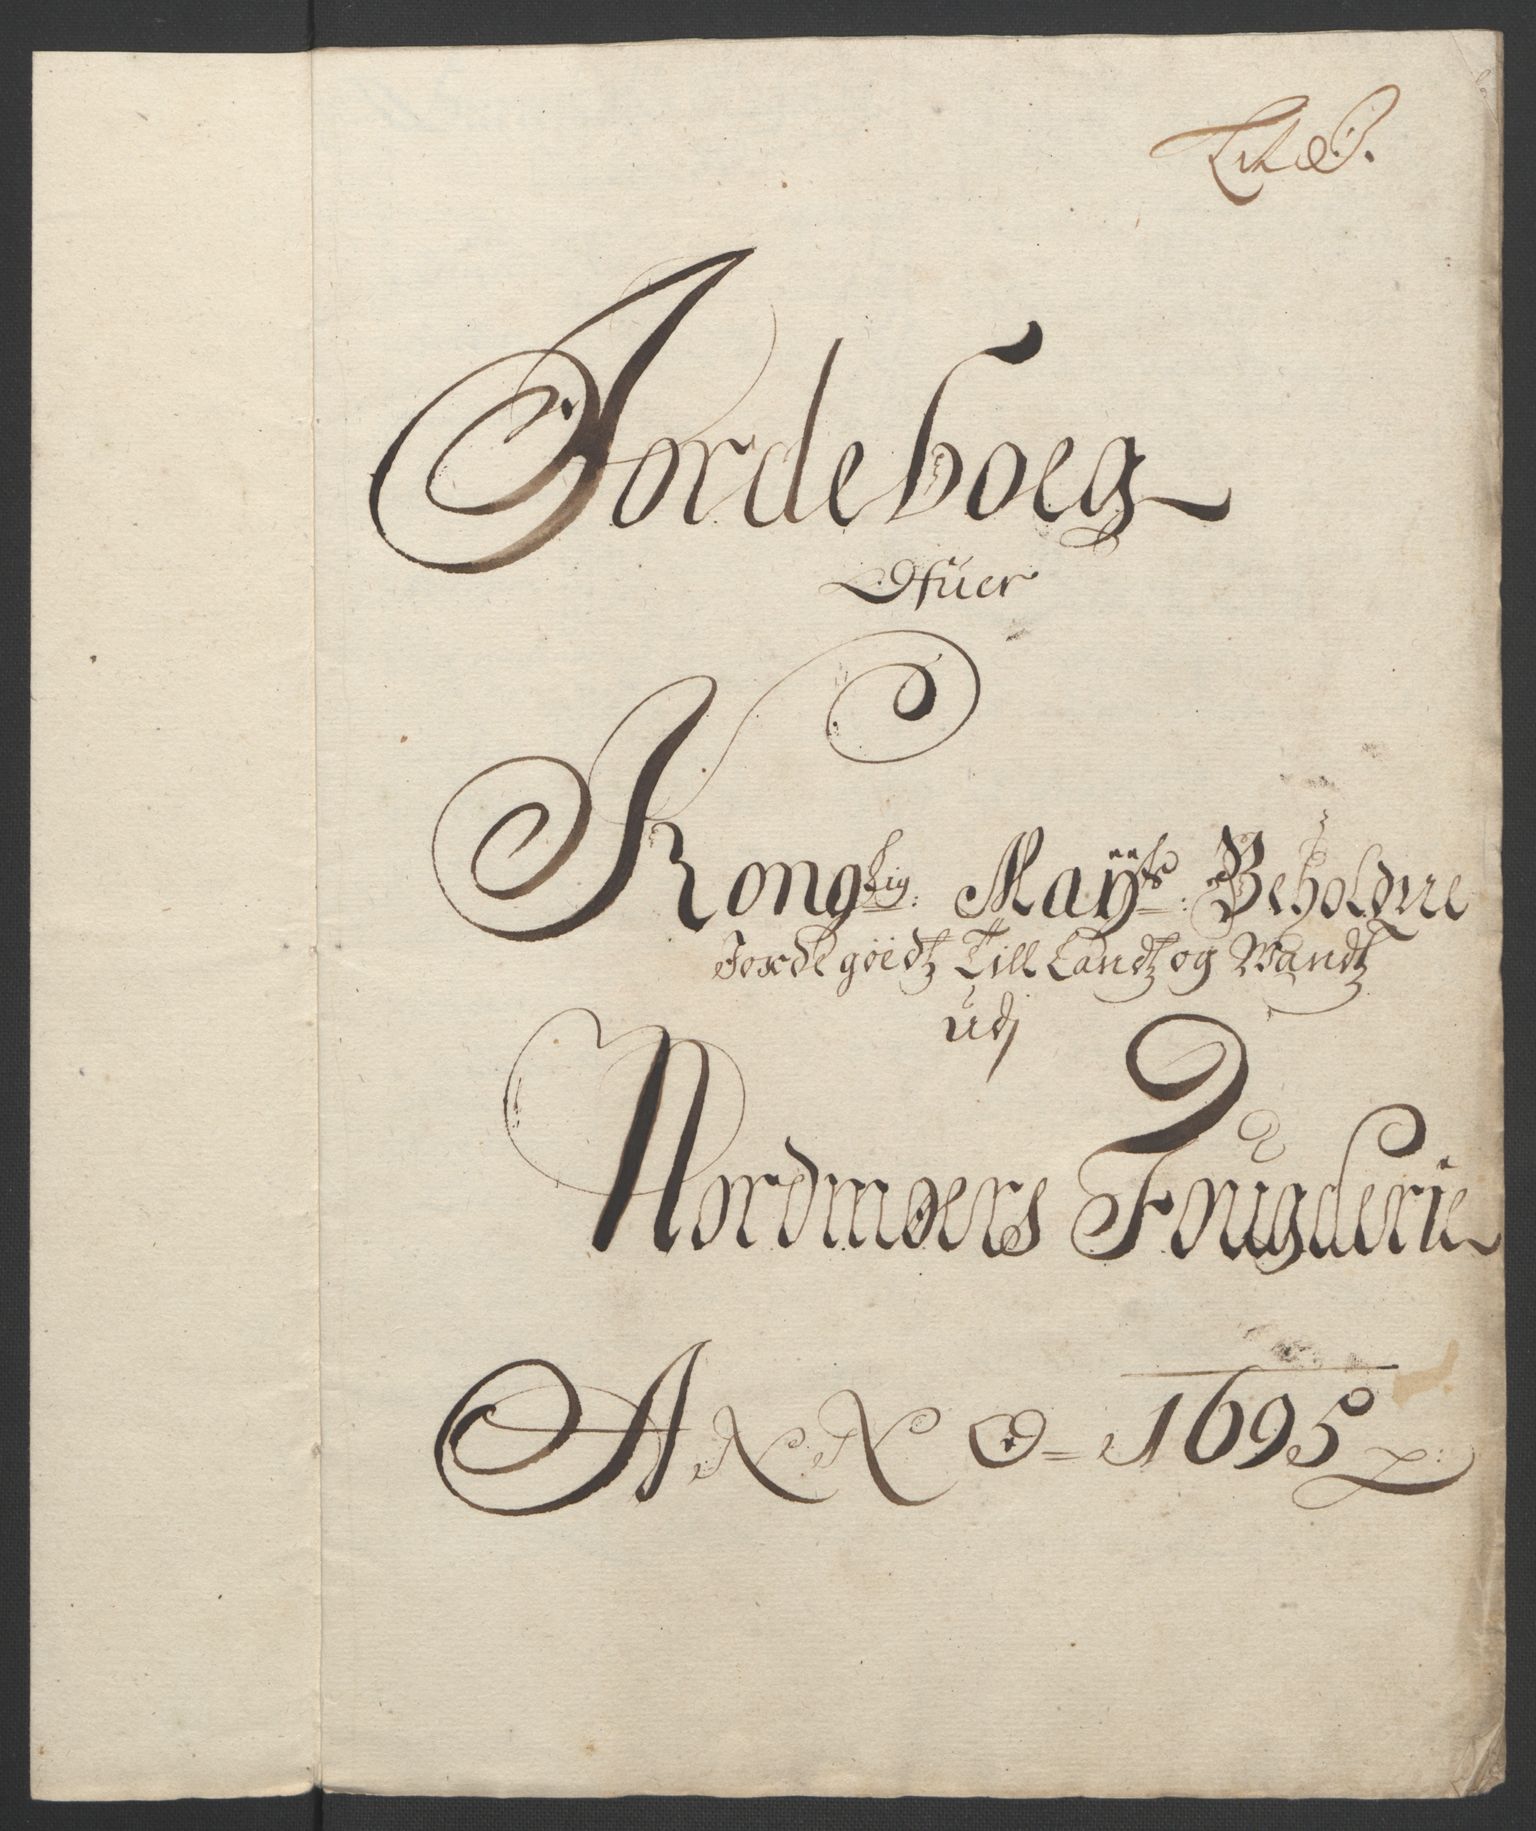 Lit: B.
Jordeboeg
Ofüer
Konglig: Maÿts: Beholdne
Jordegoedtz Till Landtz og Wandtz
udj
Nordmøers Fougderie
ANNO = 1695